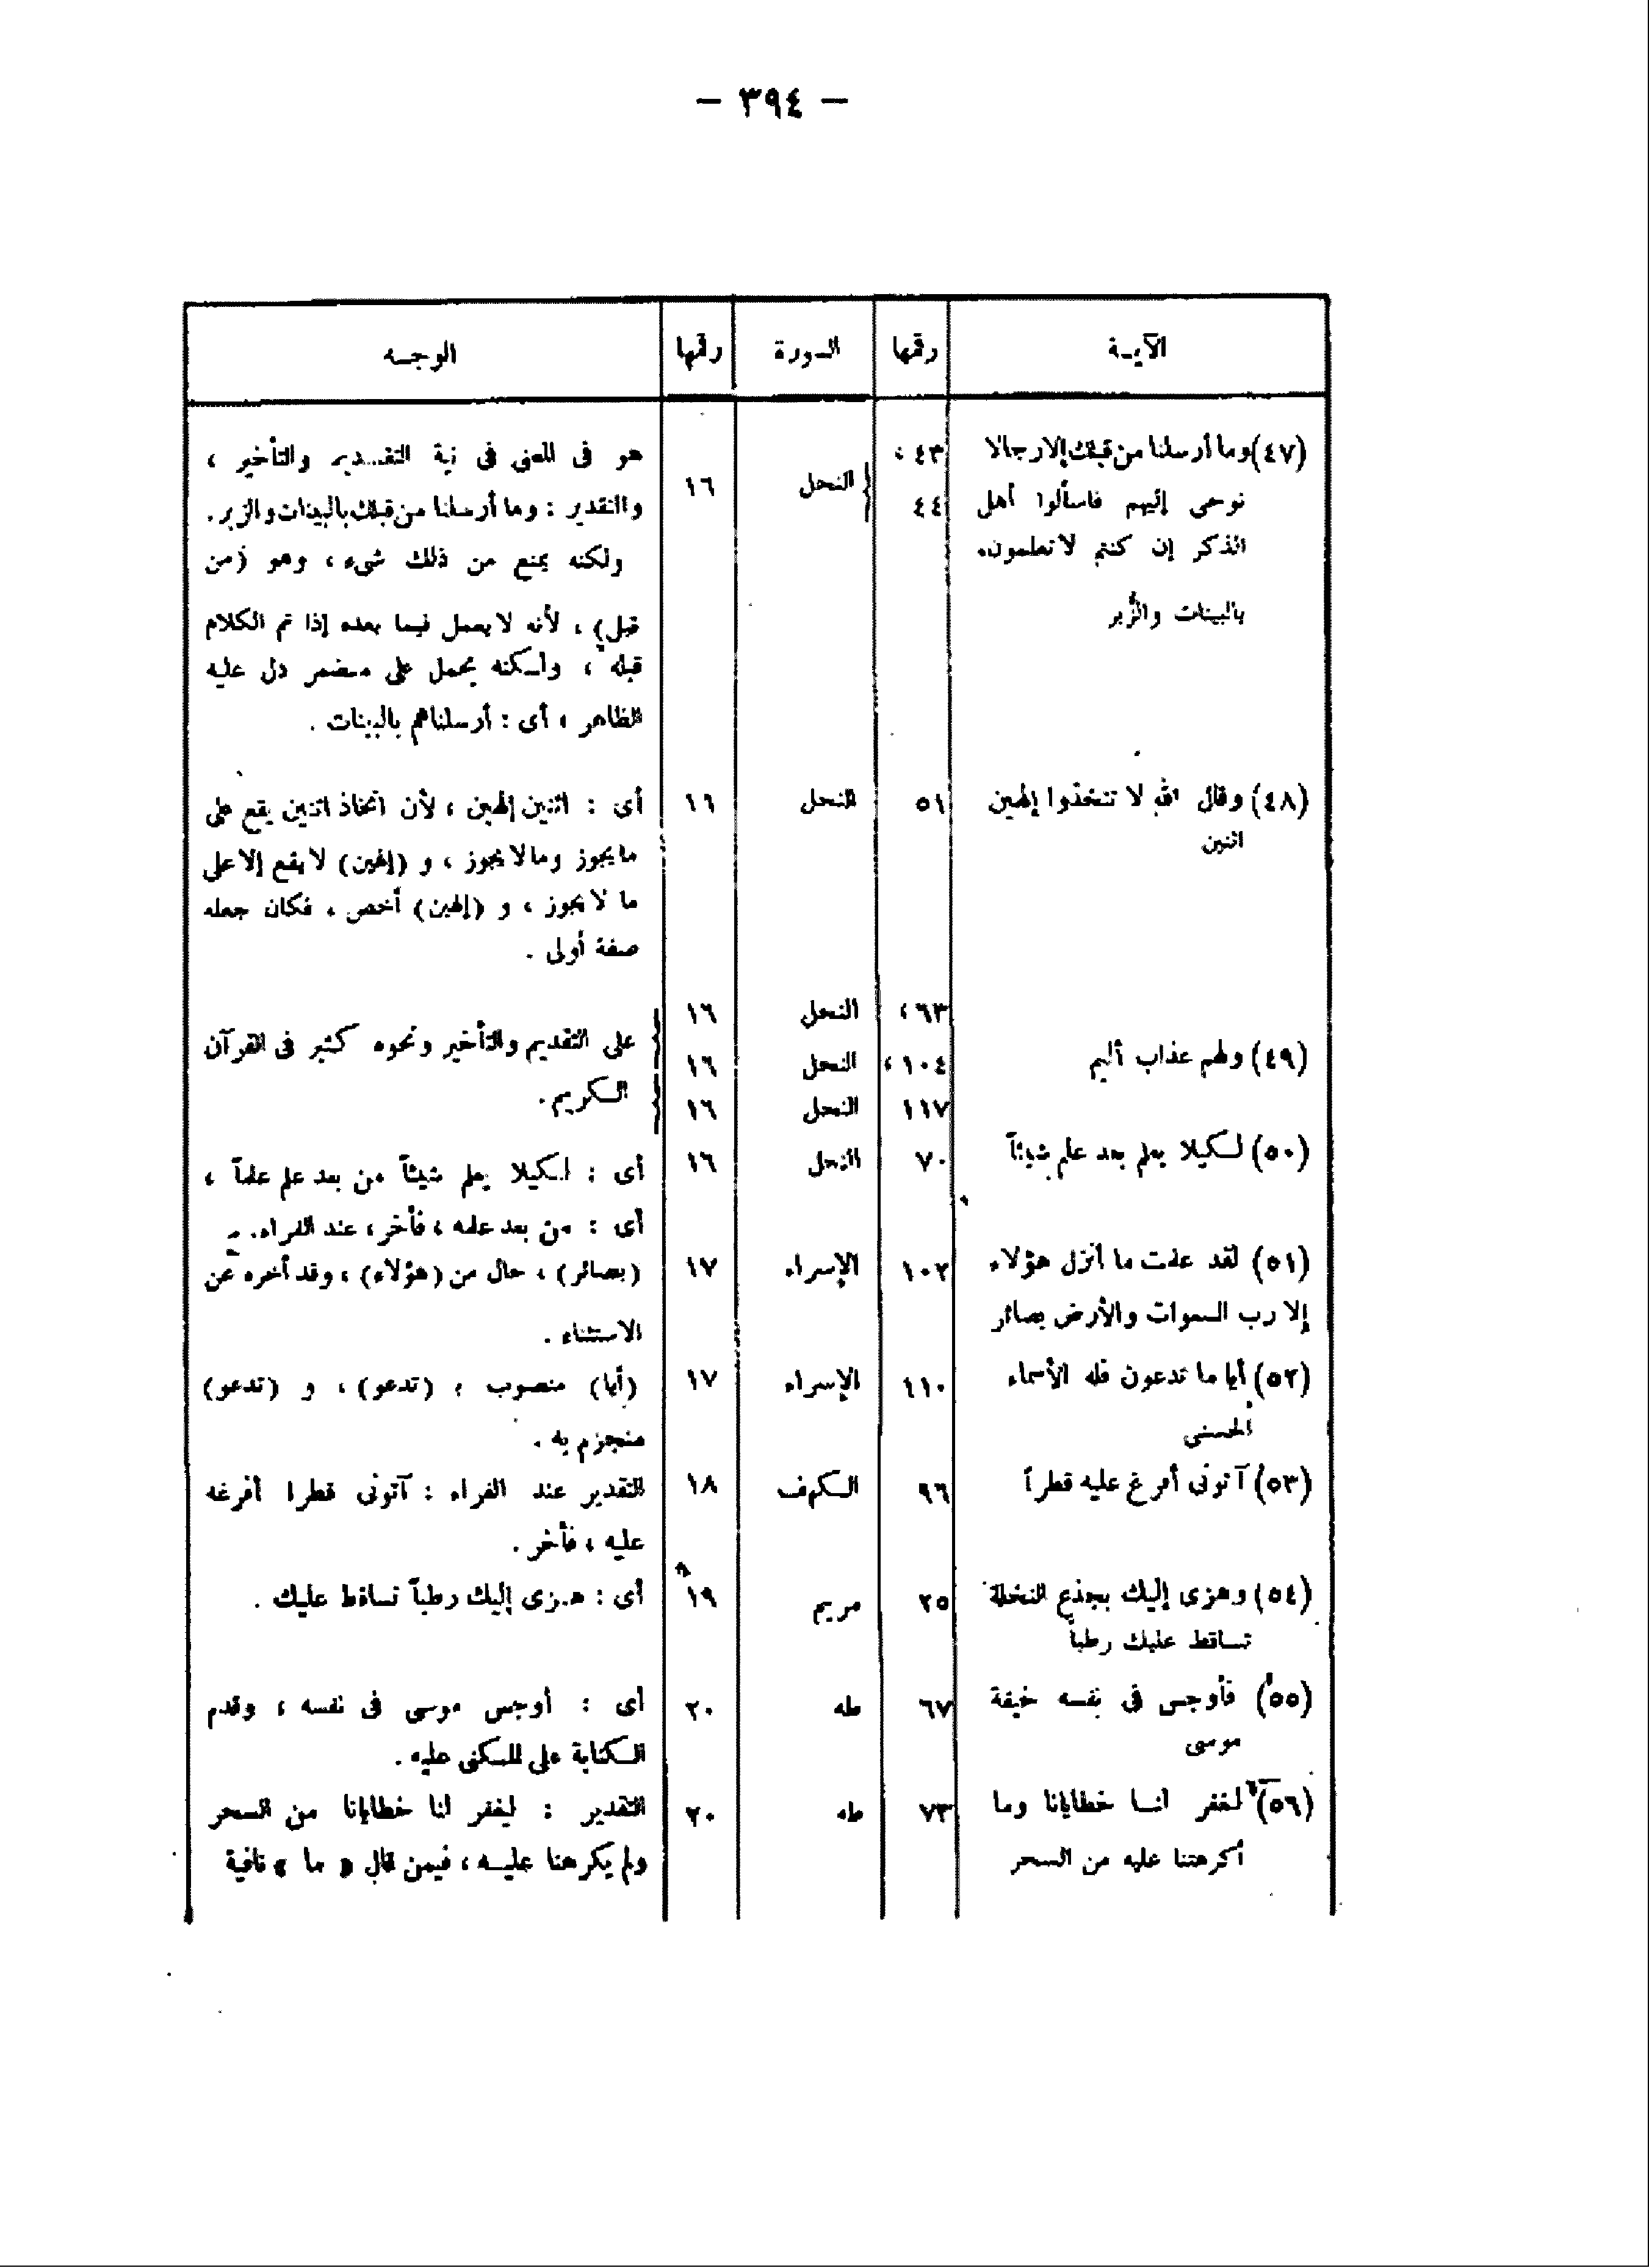 — ٣٩٤ —
الآيـة رقمها السورة رقمها الوجـه
(٤٧) وما أرسلنا من قبلك إلا رجالا ٤٣ ، النحل ١٦ هو فى المعنى فى نية التقـديم والتأخير ،
نوحى إليهم فاسألوا أهل ٤٤ والتقدير : وما أرسلنا من قبلك بالبينات والزبر.
الذكر إن كنتم لا تعلمون. ولكنه يمنع من ذلك شىء ، وهو (من
بالبينات والزُّبر قبل) ، لأنه لا يعمل فيما بعده إذا تم الكلام
قبله ، ولـكنه يحمل على مضمر دل عليه
الظاهر ، أى : أرسلناهم بالبينات .
(٤٨) وقال الله لا تتخذوا إلهين ٥١ النحل ١٦ أى : اثنين إلهين ، لأن اتخاذ اثنين يقع على
اثنين ما يجوز وما لا يجوز ، و (إلهين) لا يقع إلا على
ما لا يجوز ، و (إلهين) أخص ، فكان جعله
صفة أولى .
٦٣ ، النحل ١٦
(٤٩) ولهم عذاب أليم ١٠٤ ، النحل ١٦ على التقديم والتأخير ونحوه كثير فى القرآن
١١٧ النحل ١٦ الـكريم .
(٥٠) لـكيلا يعلم بعد علم شيئاً ٧٠ النحل ١٦ أى : لـكيلا يعلم شيئاً من بعد علم علماً ،
أى : من بعد علمه ، فأخر ، عند الفراء.
(٥١) لقد علمت ما أنزل هؤلاء ١٠٢ الإسراء ١٧ (بصائر) ، حال من (هؤلاء) ، وقد أخره عن
إلا رب السموات والأرض بصائر الاستثناء .
(٥٢) أيا ما تدعون فله الأسماء ١١٠ الإسراء ١٧ (أيا) منصوب ؛ (تدعو) ، و (تدعو)
الحسنى منجزم به .
(٥٣) آتونى أفرغ عليه قطراً ٩٦ الـكهف ١٨ التقدير عند الفراء : آتونى قطرا أفرغه
عليه ، فأخر .
(٥٤) وهزى إليك بجذع النخلة ٢٥ مريم ١٩ أى : هـزى إليك رطباً تساقط عليك .
تساقط عليك رطباً
(٥٥) فأوجس فى نفسه خيفة ٦٧ طه ٢٠ أى : أوجس موسى فى نفسه ، وقدم
موسى الـكناية على المـكنى عليه .
(٥٦) لغفر لنـا خطايانا وما ٧٣ طه ٢٠ التقدير : ليغفر لنا خطايانا من السحر
أكرهتنا عليه من السحر ولم يكرهنا عليـه ، فيمن قال « ما » نافية